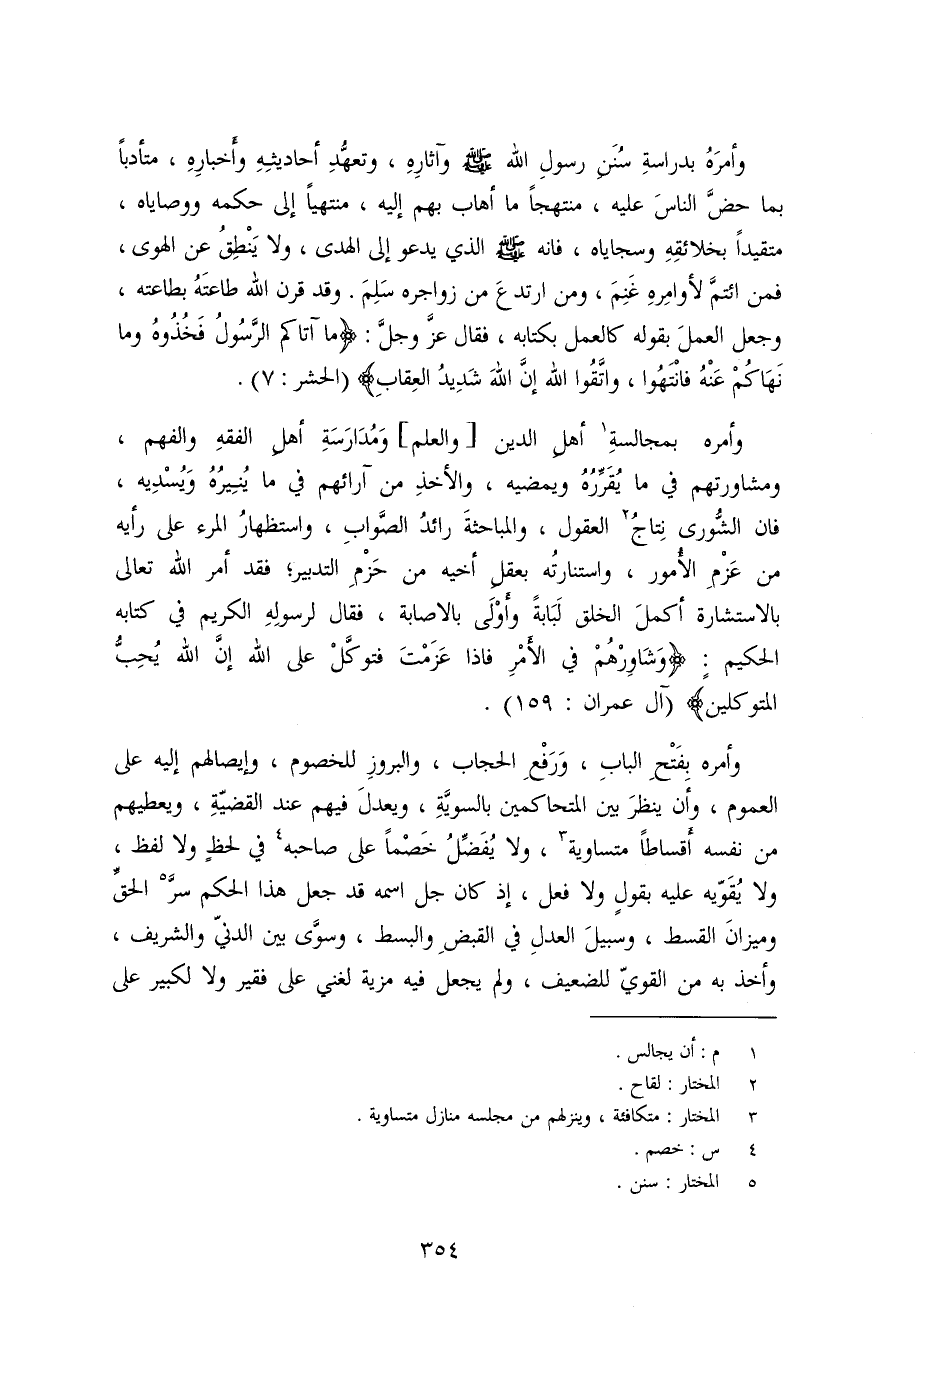 وأمرَهُ بدراسةِ سُنَنِ رسولِ الله ﷺ وآثارِهِ ، وتعهُّدِ أحاديثِهِ وأَخبارِهِ ، متأدباً
بما حضَّ الناسَ عليه ، منتهجاً ما أهاب بهم إليه ، منتهياً إلى حكمه ووصاياه ،
متقيداً بخلائقِهِ وسجاياه ، فانه ﷺ الذي يدعو إلى الهدى ، ولا يَنْطِقُ عن الهوى ،
فمن ائتمَّ لأوامِرِهِ غَنِمَ ، ومن ارتدعَ من زواجره سَلِمَ . وقد قرن الله طاعتَهُ بطاعته ،
وجعل العملَ بقوله كالعمل بكتابه ، فقال عزَّ وجلَّ : ﴿ما آتاكم الرَّسُولُ فَخُذُوهُ وما
نَهَاكُمْ عَنْهُ فانْتَهُوا ، واتَّقُوا الله إنَّ اللهَ شَدِيدُ العِقابِ﴾ (الحشر : ٧) .
وأمره بمجالسةِ١ أهلِ الدين [والعلم] وَمُدَارَسَةِ أهلِ الفقهِ والفهم ،
ومشاورتهم في ما يُقَرِّرُهُ ويمضيه ، والأخذِ من آرائهم في ما يُنِيرُهُ وَيُسْدِيه ،
فان الشُّورى نِتاجُ٢ العقول ، والمباحثةَ رائدُ الصَّوابِ ، واستظهارُ المرء على رأيه
من عَزْمِ الأُمور ، واستنارتُه بعقلِ أخيه من حَزْمِ التدبير؛ فقد أمر الله تعالى
بالاستشارة أكملَ الخلق لَبَابةً وأَوْلَى بالاصابة ، فقال لرسولِهِ الكريم في كتابه
الحكيم : ﴿وَشَاوِرْهُمْ في الأَمْرِ فاذا عَزَمْتَ فتوكَّلْ على الله إنَّ الله يُحِبُّ
المتوكلين﴾ (آل عمران : ١٥٩) .
وأمره بِفَتْحِ البابِ ، وَرَفْعِ الحجاب ، والبروزِ للخصوم ، وإيصالهم إليه على
العموم ، وأن ينظرَ بين المتحاكمين بالسويَّةِ ، ويعدلَ فيهم عند القضيّةِ ، ويعطيهم
من نفسه أقساطاً متساوية٣ ، ولا يُفَضِّلُ خَصْماً على صاحبه٤ في لحظٍ ولا لفظ ،
ولا يُقَوّيه عليه بقولٍ ولا فعل ، إذ كان جل اسمه قد جعل هذا الحكم سرَّ٥ الحقِّ
وميزانَ القسط ، وسبيلَ العدلِ في القبضِ والبسط ، وسوَّى بين الدنيّ والشريف ،
وأخذ به من القويّ للضعيف ، ولم يجعل فيه مزية لغني على فقير ولا لكبير على
١ م : أن يجالس .
٢ المختار : لقاح .
٣ المختار : متكافئة ، وينزلهم من مجلسه منازل متساوية .
٤ س : خصم .
٥ المختار : سنن .
٣٥٤